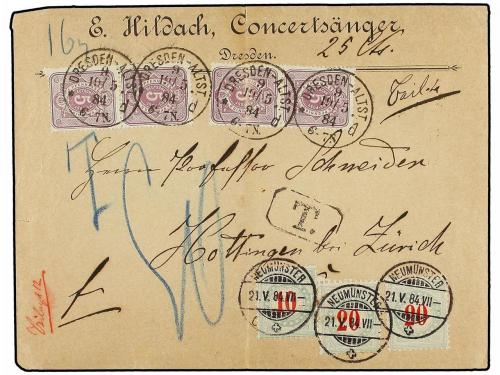 E. Hildach, Concertsänger
Dresden.
16g
25 Cts.
DRESDEN-ALTST.
9
5
84
6-7N.
DRESDEN-ALTST.
9
5
84
6-7N.
DRESDEN-ALTST.
9
5
84
6-7N.
DRESDEN-ALTST.
9
5
84
6-7N.
5
5
5
5
Herrn Professor Schneider
T.
Hottingen bei Zürich
NEUMÜNSTER
21.V.84.VII–
10
NEUMÜNSTER
21.V.84.VII–
20
NEUMÜNSTER
21.V.84.VII–
20